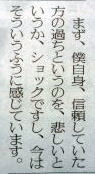 まず、僕自身、信頼していた
方の過ちというのを、悲しいと
いうか、ショックですし、今は
そういうふうに感じています。